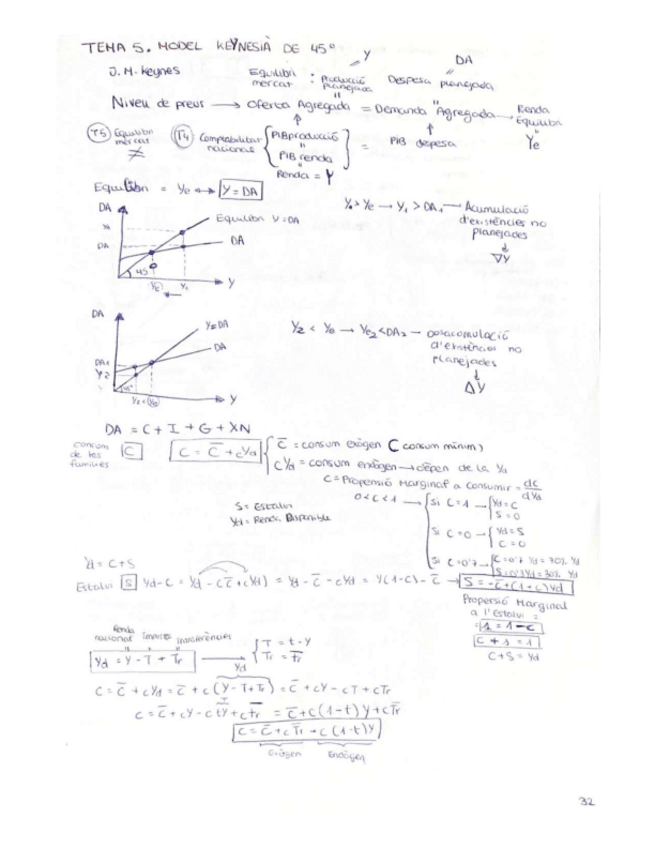 TEMA 5. MODEL KEYNESIÀ DE 45º
J. M. Keynes
Equilibri mercat : Producció planejada = Despesa planejada
Y
DA
Nivell de preus → Oferta Agregada = Demanda Agregada → Renda Equilibri
Ye
T5 Equilibri mercat ≠ T4 Comptabilitat nacional { PIB producció = PIB renda } = PIB despesa
Renda = Y
Equilibri = Ye ↔ Y = DA
DA
Equilibri Y=DA
DA
DA
45
Y
Y₁ > Ye → Y₁ > DA₁ → Acumulació
d'existències no
planejades
↓
∇Y
DA
Y=DA
DA
45º
Y
Y₂ < Ye → Ye₂ < DA₂ → Desacumulació
d'existències no
planejades
↓
ΔY
DA = C + I + G + XN
consum de les famílies C
C = C̄ + cYd
C̄ = consum exògen (consum mínim)
cYd = consum endògen → depen de la Yd
C = Propensió Marginal a Consumir = dC/dYd
0 < C < 1
Si C = 1 → { Yd = C
S = 0
Si C = 0 → { Yd = S
C = 0
Si C = 0'7 → { C = 0'7 Yd = 70% Yd
S = 0'3 Yd = 30% Yd
S = Estalvi
Yd = Renda Disponible
Yd = C + S
Estalvi S Yd - C = Yd - (C̄ + cYd) = Yd - C̄ - cYd = Y(1-C) - C̄ → S = -C̄ + (1-c)Yd
Propensió Marginal
a l'Estalvi =
= 1 - C
C + S = Yd
Renda nacional Impostos transferències
Yd = Y - T + Tr
Yd
T = t · Y
Tr = T̄r
C = C̄ + cYd = C̄ + c(Y - T + Tr) = C̄ + cY - cT + cTr
C = C̄ + cY - ctY + cT̄r = C̄ + c(1-t)Y + cT̄r
C = C̄ + cT̄r + c(1-t)Y
Exògen Endògen
32